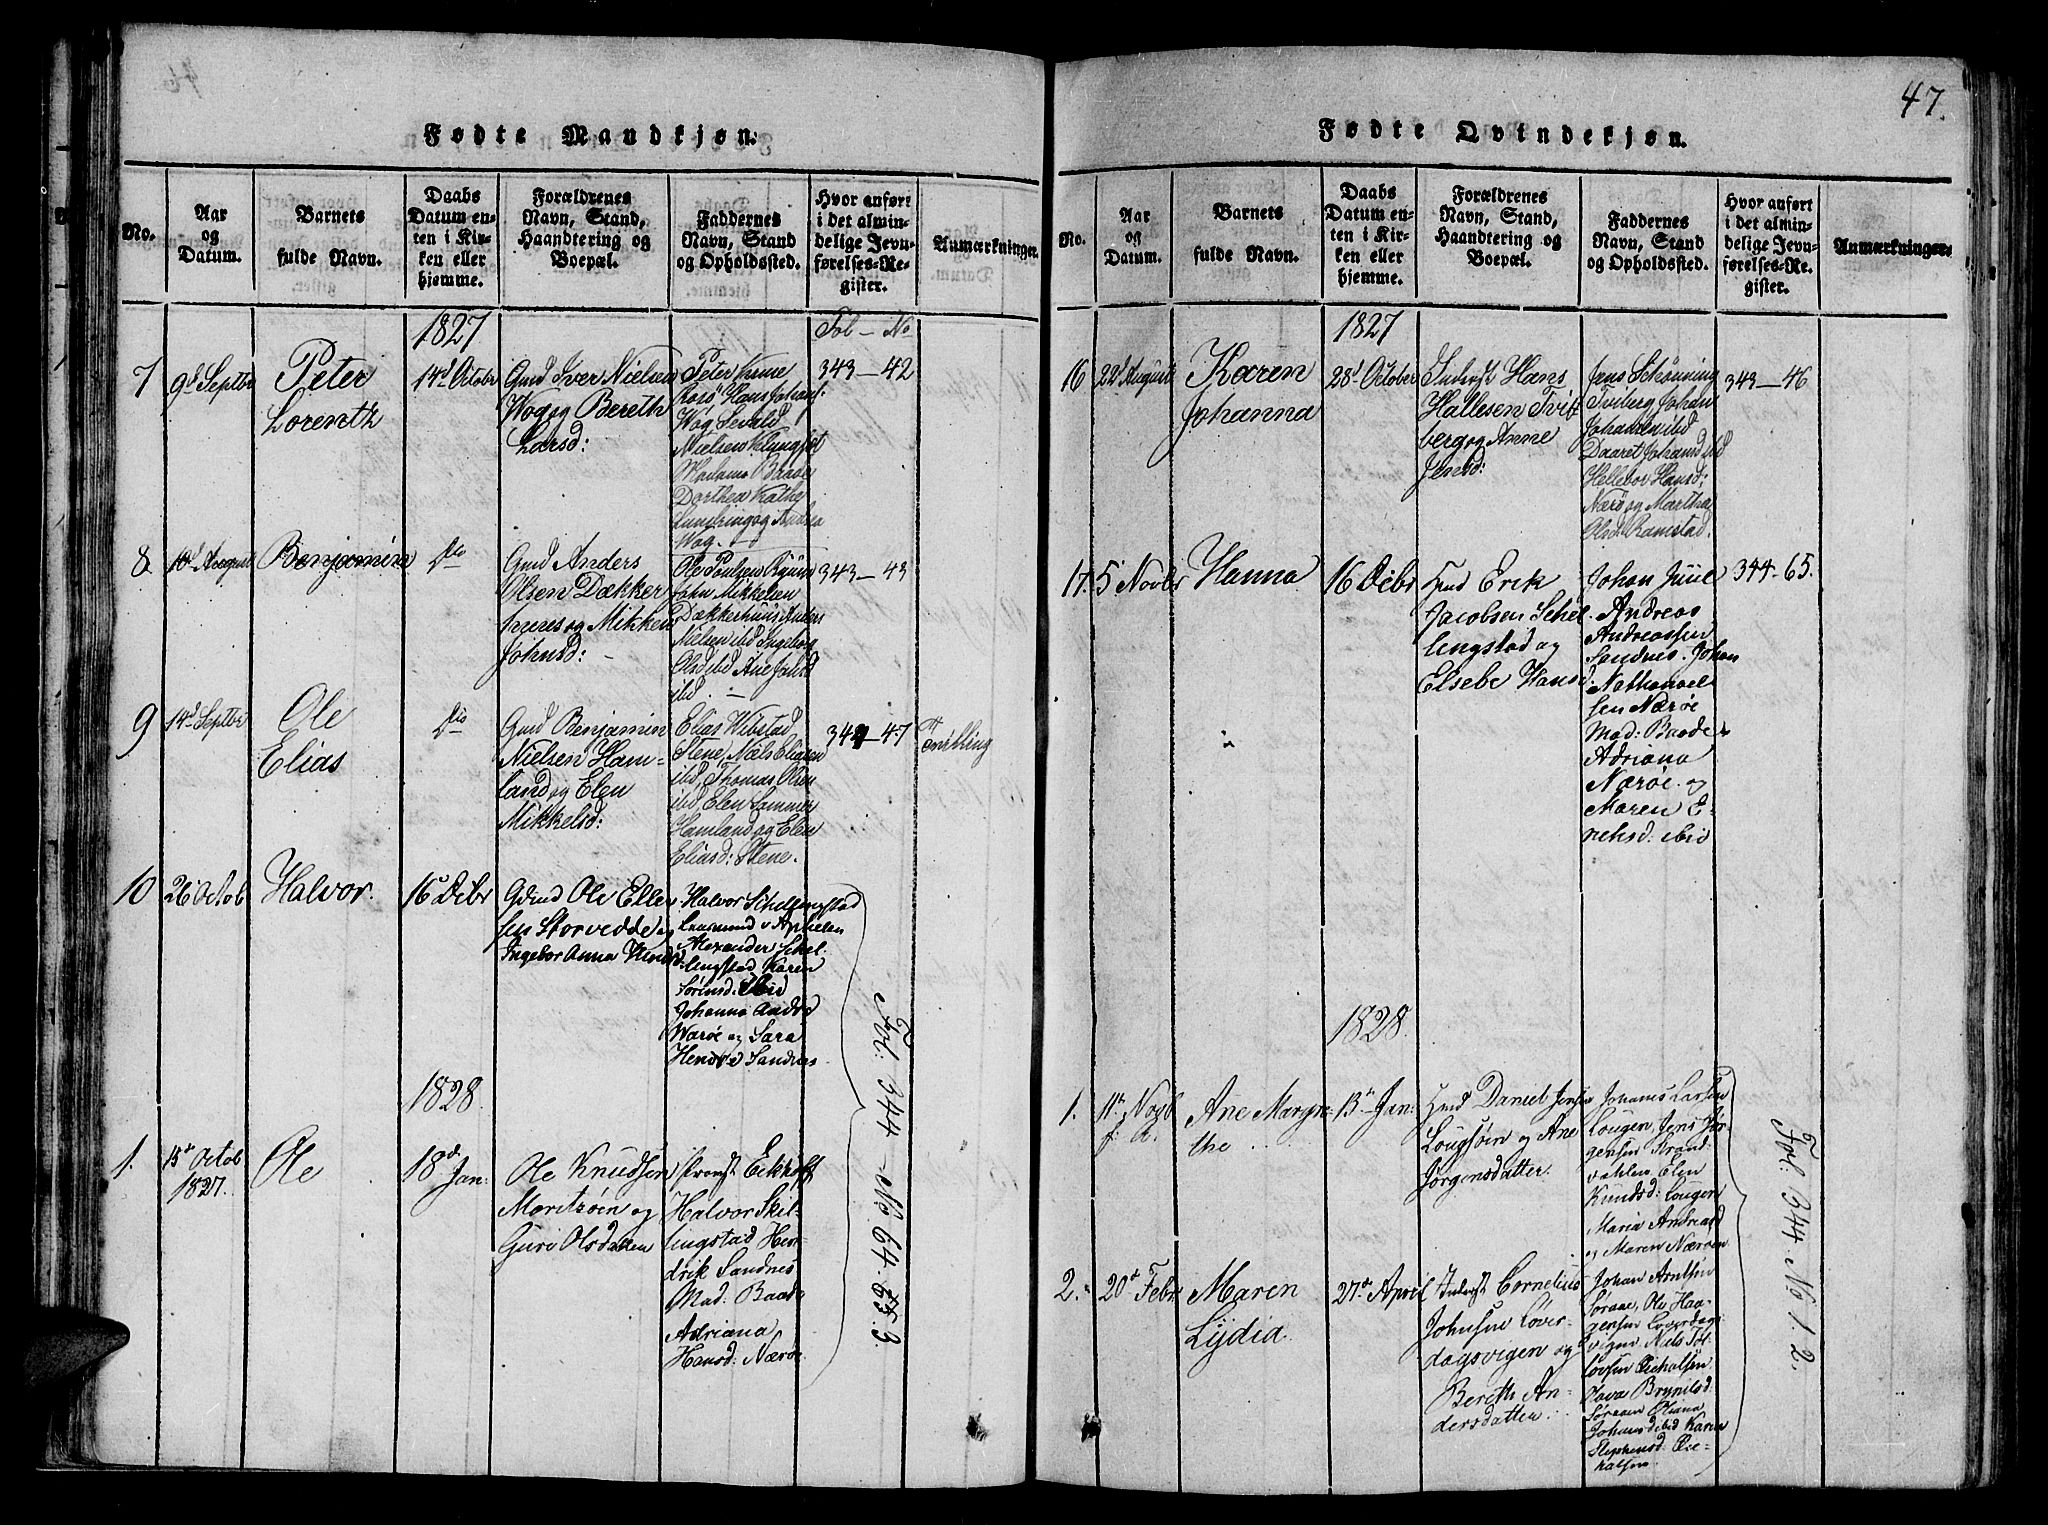 Fødte Mandkjøn.
No.
Aar
og
Datum.
Barnets
fulde Navn.
Daabs
Datum en-
ten i Kir-
ken eller
hjemme.
Forældrenes
Navn, Stand,
Haandtering og
Boepæl.
Faddernes
Navn, Stand
og Opholdssted.
Hvor anført
i det almin-
delige Jevn-
førelses-Re-
gister.
Anmærkninger.
1827
Fol — No
7
9d Septbr
Peter
Lorentz
14d Octobr
Gmd Iver Nielsen
Wog og Bereth
Larsd:
Peter Kime
Rosö Hans Johans
Wog Sevald
Nielsen Klungset
Madame Baade
Dorthea Katha
Lundring og
Wog.
343 — 42
8
10d August
Benjamin
do
Gmd Anders
Olsen Dækker
og Mikken
Johnsd:
Ole Poulsen
John Mikkelsen
Dækkerhuus Anders
Nielsen ibd Ingeborg
Olsd ibd Ane Johsd
ibd.
343 — 43
9
14d Septbr
Ole
Elias
do
Gmd Benjamin
Nielsen Ham-
land og Elen
Mikkelsd:
Elias Wibstad
Stene, Niels Eliasen
ibd, Thomas Olsen
ibd, Elen Sommer
Hamland og Elen
Eliasd: Stene.
344 — 47
Tvilling
10
26 Octob
Halvor.
16 Decbr
Gdmd Ole Ellef
sen Storvedde og
Ingebor Anna
Halvor Schellingstad
Alexander Schel-
lingstad Karen
Sörensd: ibid
Johanna
Wærøe og Sara
Sandnes
1828.
1.
15de Octob
1827.
Ole
18d
Jan:
Ole Knudsen
Moritzöen og
Guri Olsdatten
Provst Eckhoff
Halvor Skil-
lingstad Hen-
drik Sandnes
Mad: Baade
Adriana
Hansd: Nærøe
Fol: 344 — No 64. 65.
47.
Fødte Qvindekjøn.
No.
Aar
og
Datum.
Barnets
fulde Navn.
Daabs
Datum en-
ten i Kir-
ken eller
hjemme.
Forældrenes
Navn, Stand,
Haandtering og
Boepæl.
Faddernes
Navn, Stand
og Opholdssted.
Hvor anført
i det almin-
delige Jevn-
førelses-Re-
gister.
Anmærkninger.
1827
16
22d August
Karen
Johanna
28d October
Inderst Hans
Hallesen Tvi-
berg og Anne
Jensd:
Jens Schöning
Tviberg Johan
Johansen ibd
Daaret Johansd ibd
Hellebor Hansd:
Nærö og Martha
Olsd. Ramstad.
343 — 46
17.
5 Novbr
Hanna
16 Decbr
Hmd Erik
Jacobsen Schel
lingstad og
Elsebe Hansd
Johan Juul
Andreas
Andreassen
Sandnes. Johan
Nathanael
sen Nærøe
Mad: Baade
Adriana
Nærøe og
Maren E-
richsd: ibid
344 - 65.
1828.
1.
11te Novb
f: A.
Ane Margre-
the
13de Jan:
Hmd Daniel Jensen
Lougsöin og Ane
Jörgensdatter.
Johanes Larsen
Lougen, Jens Jör
gensen Strand-
vahlen Elen
Knudsd: Lougen
Maria Andreasd
og Maren Næröen
2.
20de Febr
Maren
Lydia.
27de April
Inderst Cornelius
Johnsen Løver-
dagsvigen og
Bereth An-
dersdatter.
Johan Arntsen
Søraae, Ole Haa-
gensen Løverdag-
vigen Niels Tol-
lovsen Eichalsen
Olava Brynilsd:
Søraaen Oliana
Johansd: ibid Karen
Stephensd: Eic-
halsen.
Fol: 344. No 1. 2.